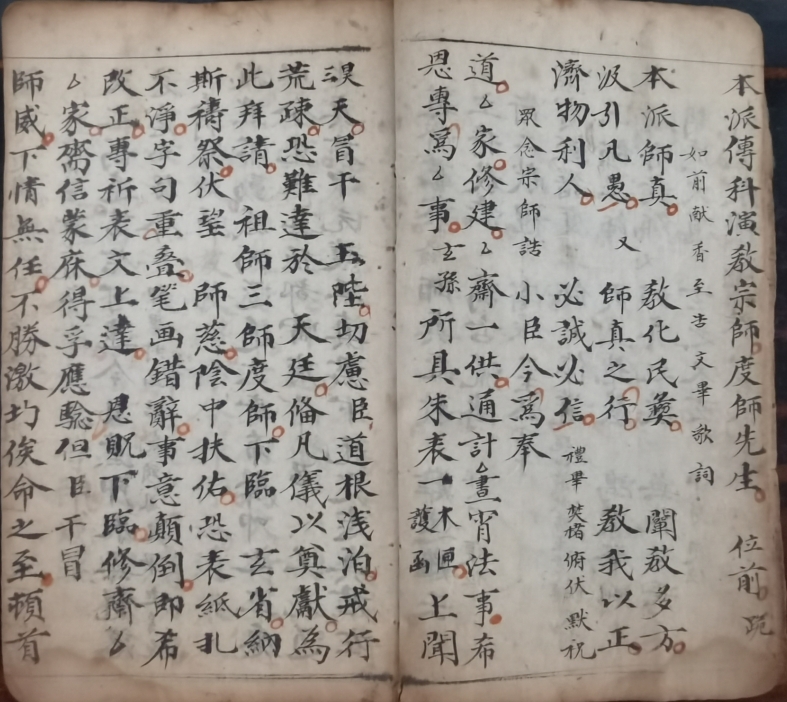 本派傳科演教宗師度師先生 位前 跪
如前献香至吉文畢歌詞
本派師真 教化民彝 闡敎多方
汲引凡愚 又 師真之行 教我以正
濟物利人 必誠必信 禮畢 焚楮 俯伏 默祝
眾念宗師誥 小臣今爲奉
道 厶家修建厶齋一供通計厶晝宵法事希
恩專爲厶事玄孫所具朱表一木匣護函上聞
昊天冒干 玉陛切慮臣道根浅泊戒行
荒疎恐難達於 天廷俻凡儀以奠獻為
此拜請 祖師三師度師下臨 玄省納
斯禱祭伏望 師慈陰中扶佑恐表紙扎
不淨字句重叠笔画錯辭事意顛倒即希
改正專祈表文上達 恩贶下臨修齋厶
厶家齋信蒙庥得孚應驗但臣干冒
師威下情無任不勝激切俟命之至頓首